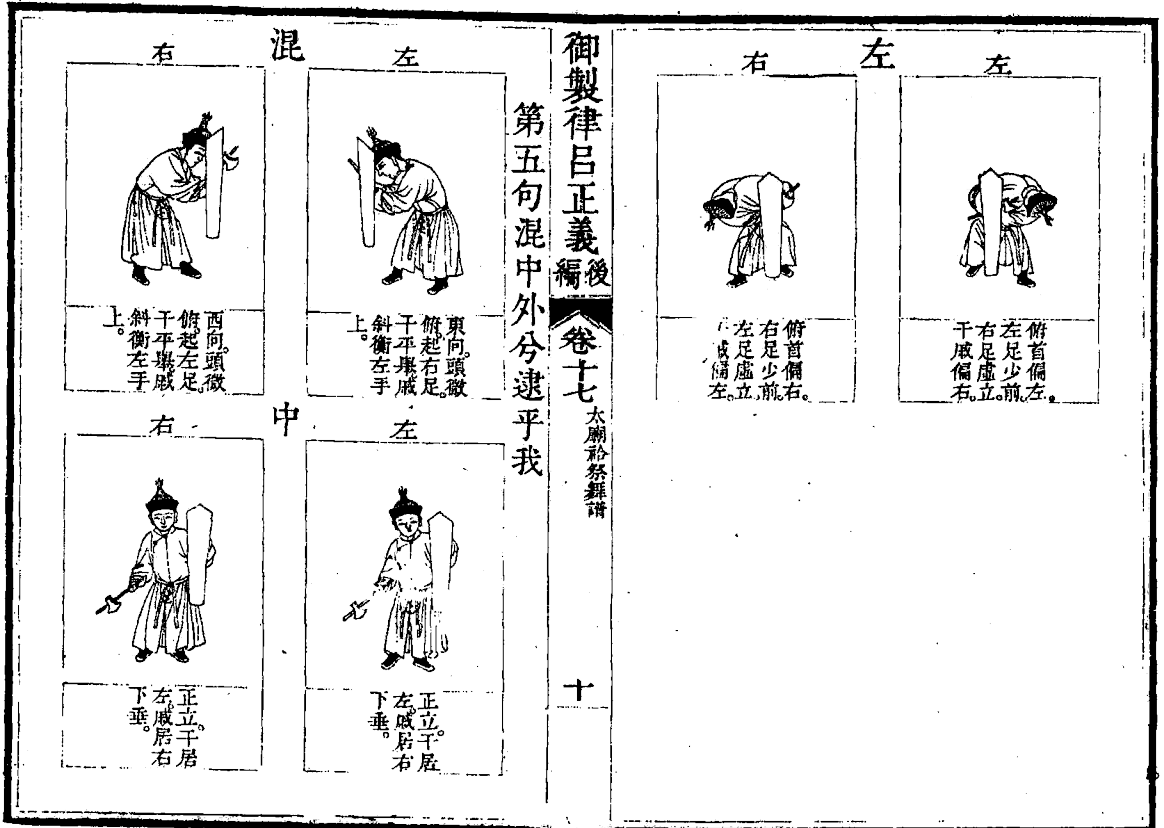 左
左
俯首偏左。
左足少前。
右足虛立。
干戚偏右。
右
俯首偏右。
右足少前。
左足虛立。
戚偏左。
御製律呂正義後編
卷十七
太廟祫祭舞譜
十
第五句混中外兮逮乎我
混
左
東向。頭微
俯。起右足。
干平舉。戚
斜衡左手
上。
右
西向。頭微
俯。起左足。
干平舉。戚
斜衡左手
上。
中
左
正立。干居
左。戚居右
下垂。
右
正立。干居
左。戚居右
下垂。